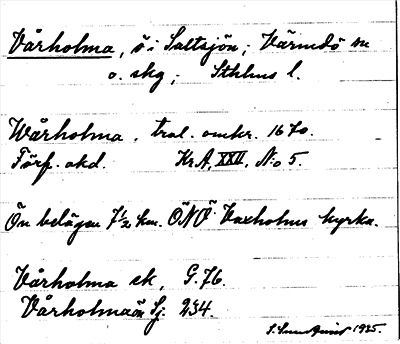 Vårholma, ö i Saltsjön; Värmdö sn
o. skg; Sthlms l.
Wårholma. tral. omkr. 1670.
Förf. okd. Kr.A, XXII, No 5.
Ön belägen 7½ km. ÖNÖ Vaxholms kyrka.
Vårholma sk, G. 76.
Vårholmaön Sj. 234.
1925.